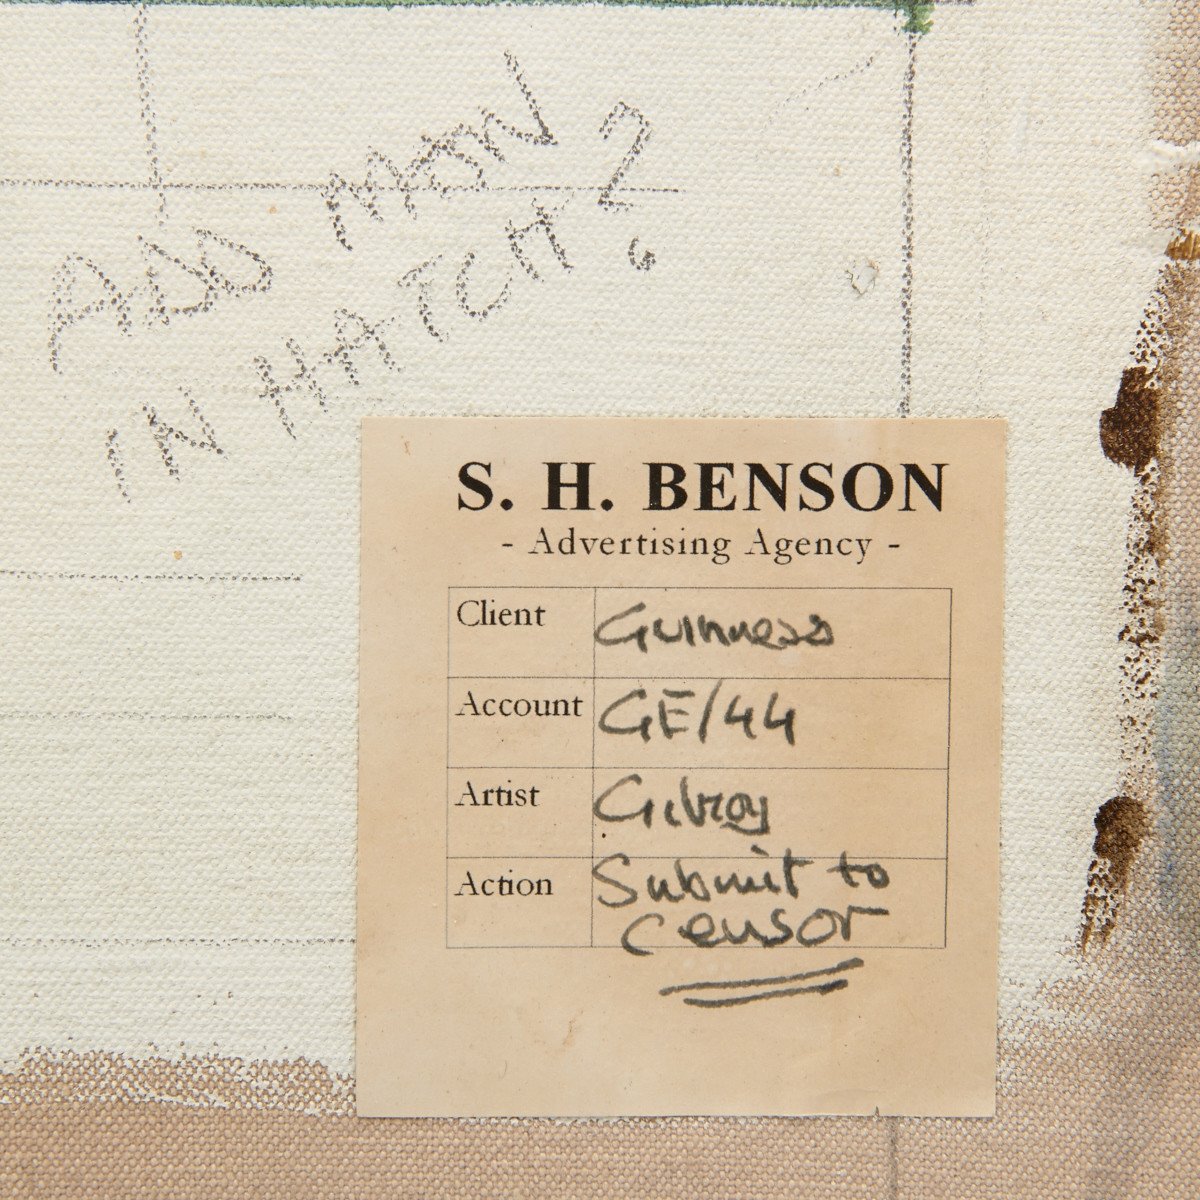 ADD MAN
IN HATCH?
S. H. BENSON
- Advertising Agency -
Client Guinness
Account GE/44
Artist Gilroy
Action Submit to
censor